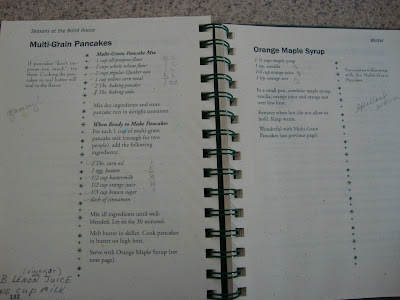 Seasons at the Bond House
Multi-Grain Pancakes
If pancakes "don't impress you much" try these. Cooking the pancakes in real butter will seal in the flavor.
Multi-Grain Pancake Mix
1 cup all-purpose flour
1 cup whole wheat flour
1 cup regular Quaker oats
1 cup yellow corn meal
2 Tbs. baking powder
2 Tbs. baking soda
Mix dry ingredients and store
pancake mix in airtight container.
When Ready to Make Pancakes
For each 1 cup of multi-grain
pancake mix (enough for two
people), add the following
ingredients:
2 Tbs. corn oil
1 egg, beaten
1/2 cup buttermilk
1/2 cup orange juice
1/3 cup brown sugar
dash of cinnamon
Mix all ingredients until well-
blended. Let sit for 30 minutes.
Melt butter in skillet. Cook pancakes
in butter on high heat.
Serve with Orange Maple Syrup (see
next page).
132
(vinegar)
LEMON JUICE
CUP MILK
Winter
Orange Maple Syrup
cup maple syrup
vanilla
cup orange juice
orange zest
In a small pan, combine maple syrup,
vanilla, orange juice and orange zest
over low heat.
Remove when hot (do not allow to
boil). Keep warm.
Wonderful with Multi-Grain
Pancakes (see previous page).
with
the Multi-Grain
Pancakes.